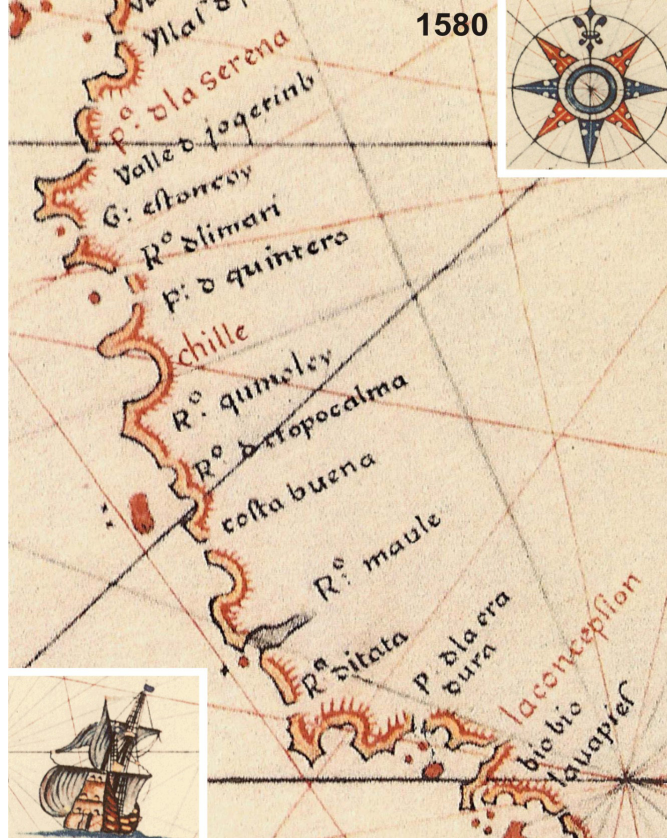 1580
yllas d
pº: dla serena
Valle d joqerinb
G: estoncoy
Rº dlimari
p: d quintero
chille
Rº: quimoley
Rº d ctopocalma
costa buena
Rº: maule
Rª ditata
P. dla era
dura
laconcepsion
bio bio
lauapies